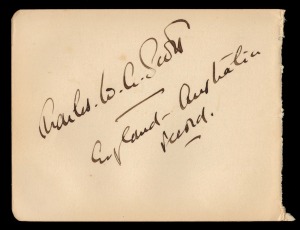 Charles. W. A. Scott
England - Australia
record.